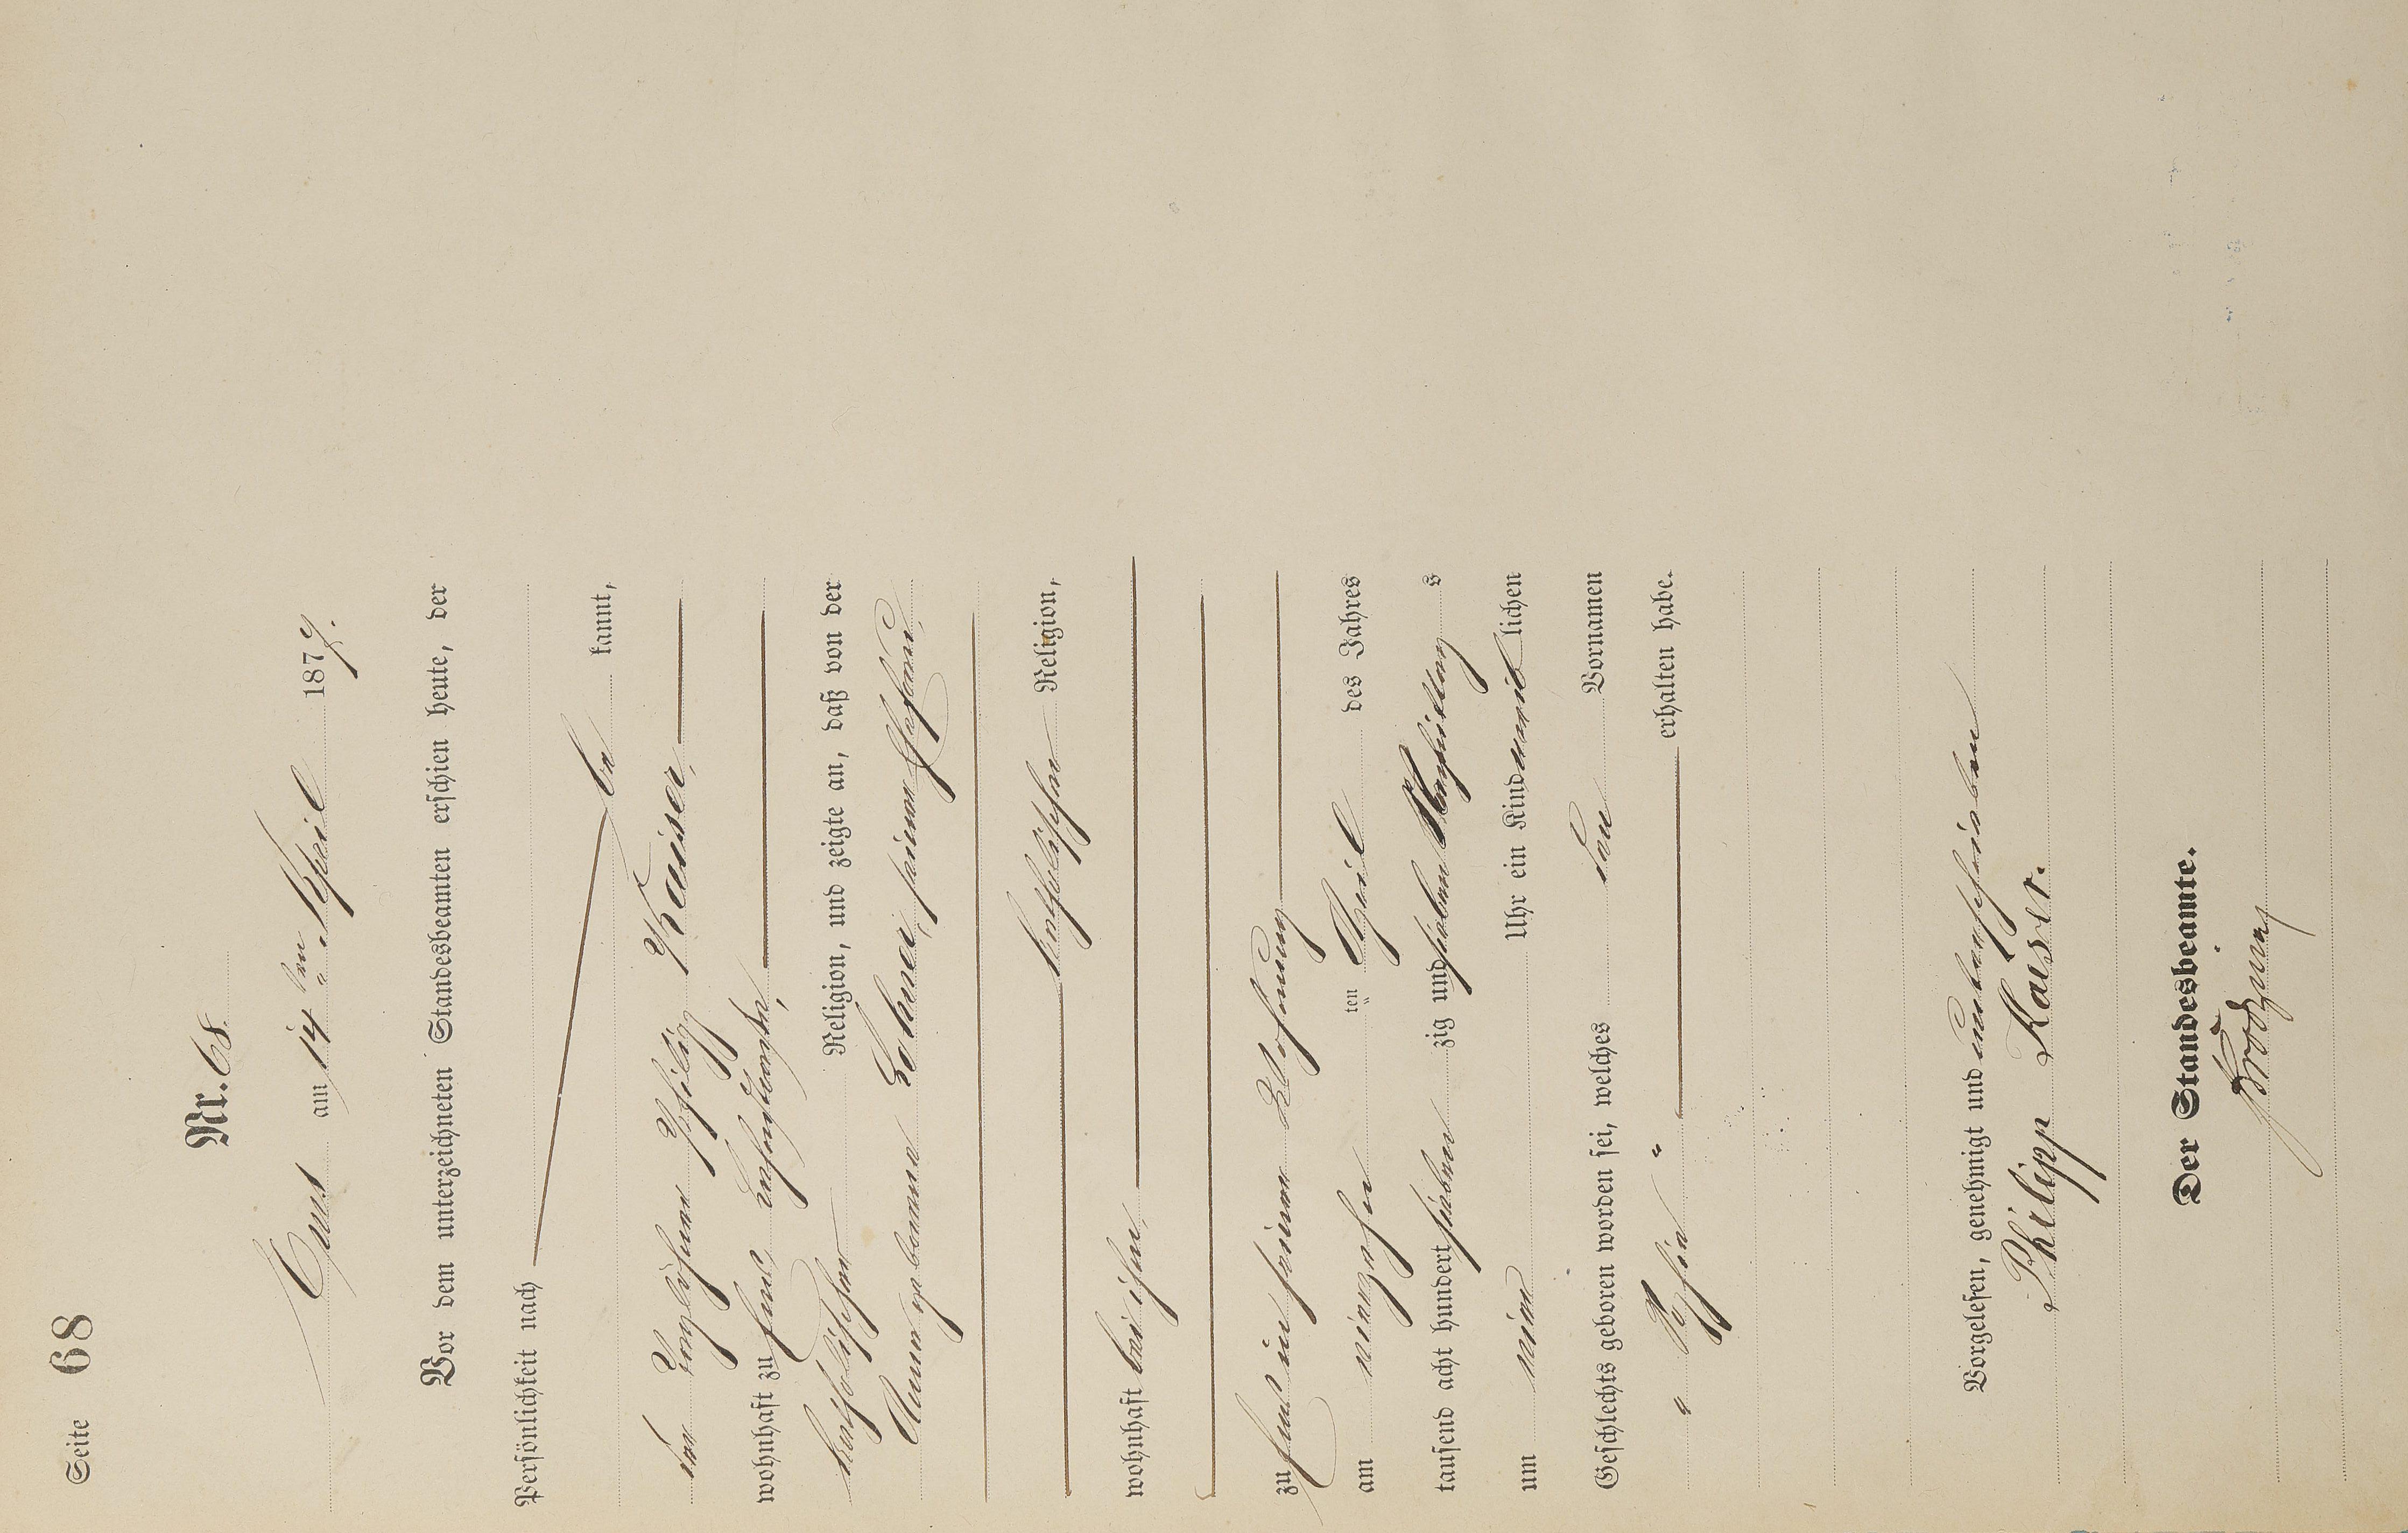 Seite 68
Nr. 68.
Ems am 14 ten April 1877.
Vor dem unterzeichneten Standesbeamten erschien heute, der
Persönlichkeit nach
be kannt,
der Taglöhner Philipp Kaiser,
wohnhaft zu Ems,
katholischer Religion, und zeigte an, daß von der
Anna geborene seiner Ehefrau,
katholischer Religion,
wohnhaft bei ihm,
zu Ems in seiner Wohnung
am ten April des Jahres
tausend acht hundert sieben zig und sieben Nachmittags
um neun Uhr ein Kind männlichen
Geschlechts geboren worden sei, welches den Vornamen
" " erhalten habe.
Vorgelesen, genehmigt und unterschrieben
Philipp Kaiser.
Der Standesbeamte.